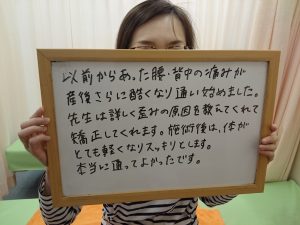 以前からあった腰・背中の痛みが
産後さらに酷くなり通い始めました。
先生は詳しく歪みの原因を教えてくれて
矯正してくれます。施術後は、体が
とても軽くなりスッキリとします。
本当に通ってよかったです。